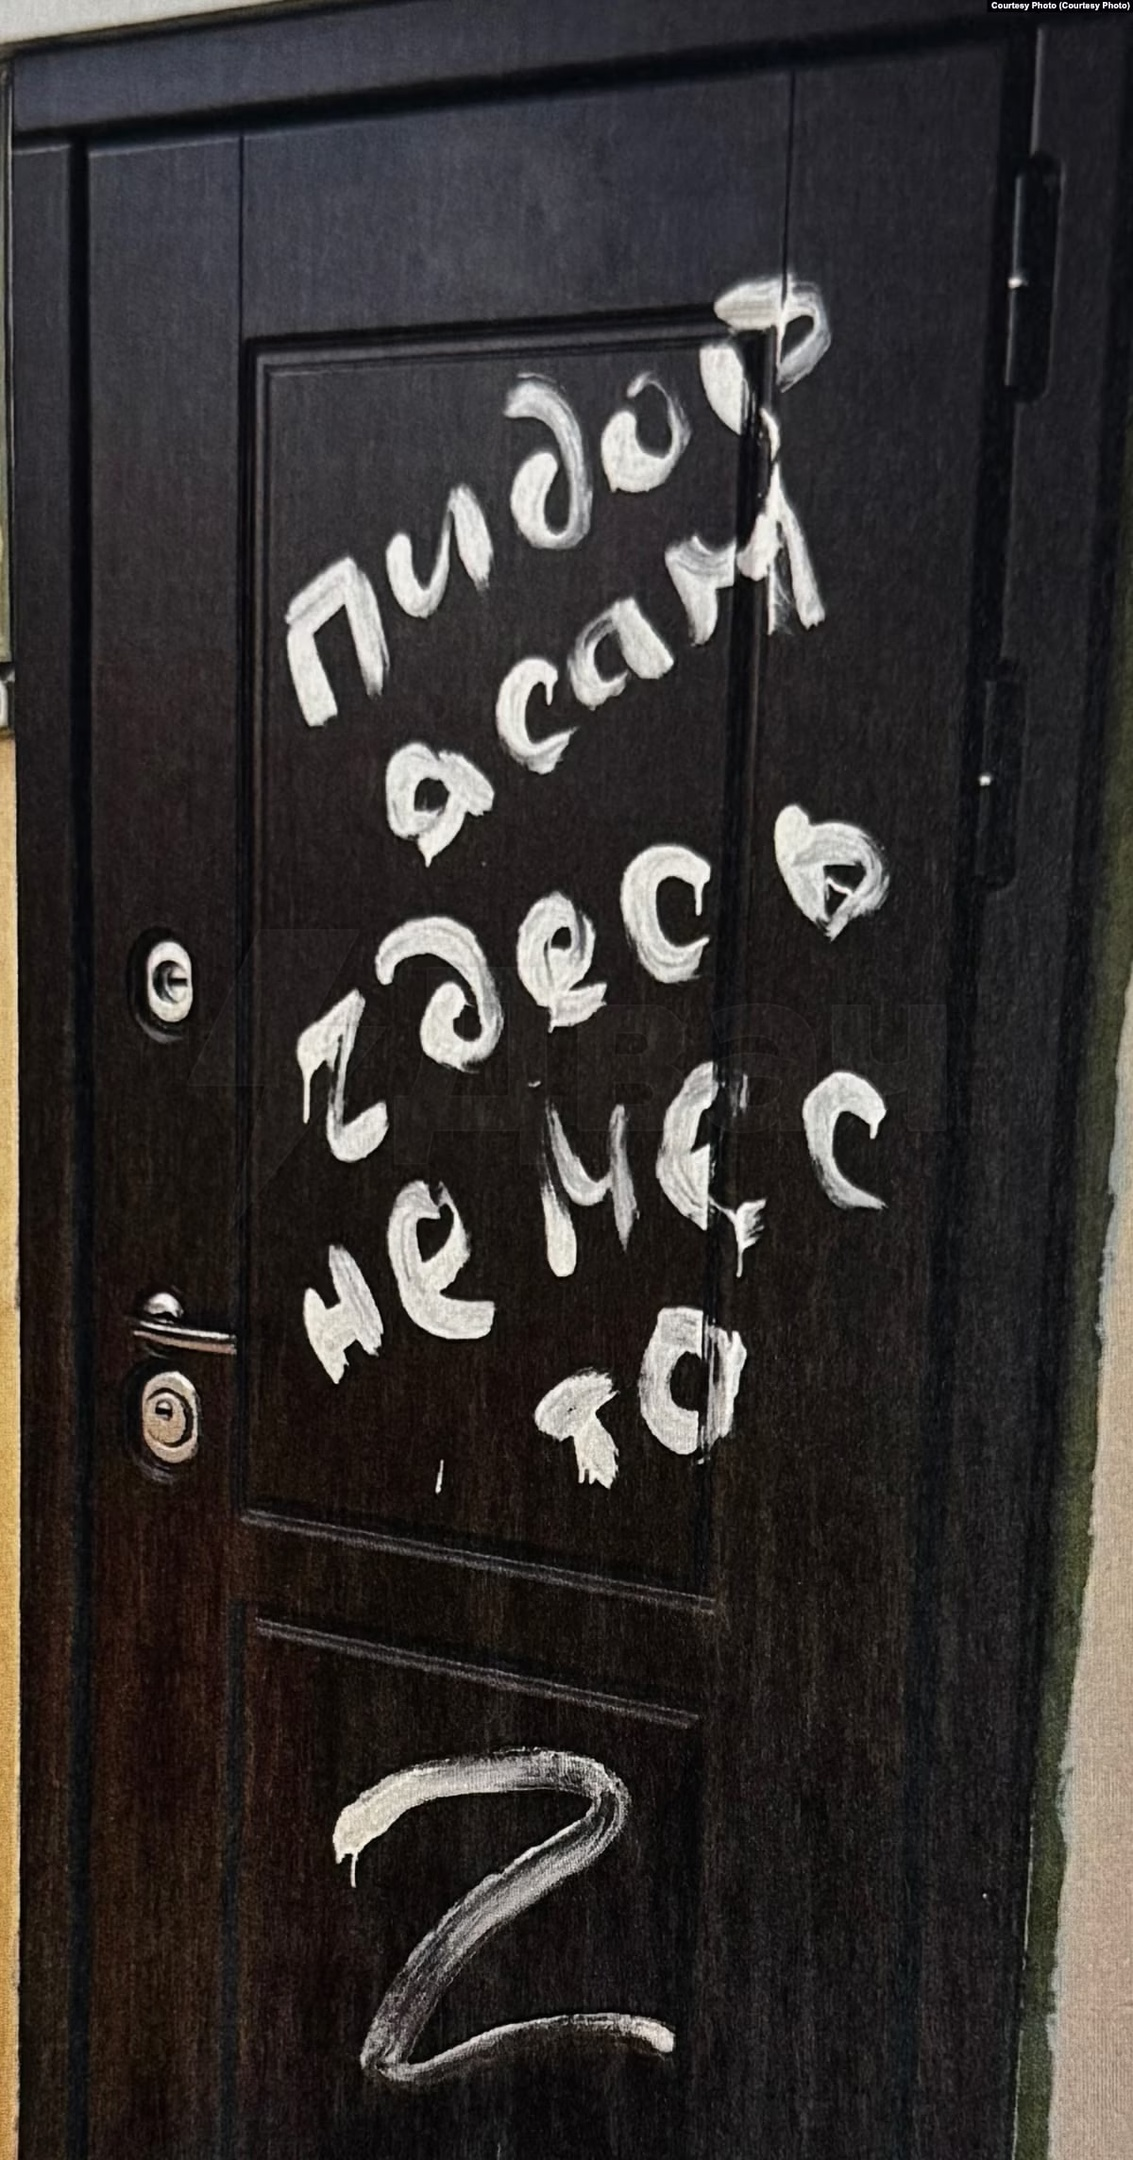 Courtesy Photo (Courtesy Photo)
пидор
асам
Zдесь
не мес
то
Z